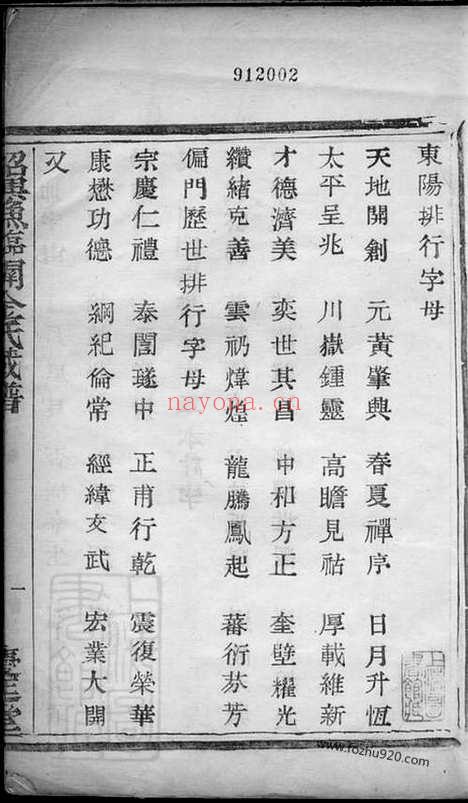 912002
東陽排行字母
天地開創 元黃肇興 春夏禪序 日月升恆
太平呈兆 川嶽鍾靈 高瞻見祜 厚載維新
才德濟美 奕世其昌 中和方正 奎壁耀光
纘緒克善 雲礽煒煌 龍騰鳳起 蕃衍芬芳
偏門歷世排行字母
宗慶仁禮 泰閏璲中 正甫行乾 震復榮華
康懋功德 綱紀倫常 經緯文武 宏業大開
又
一
nayona.cn
www.fozhu920.com